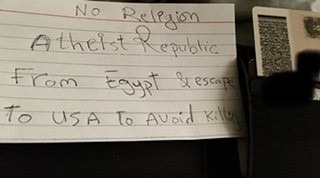 No Relegion
Atheist Republic
From Egypt & escape
To USA To Avoid Killin